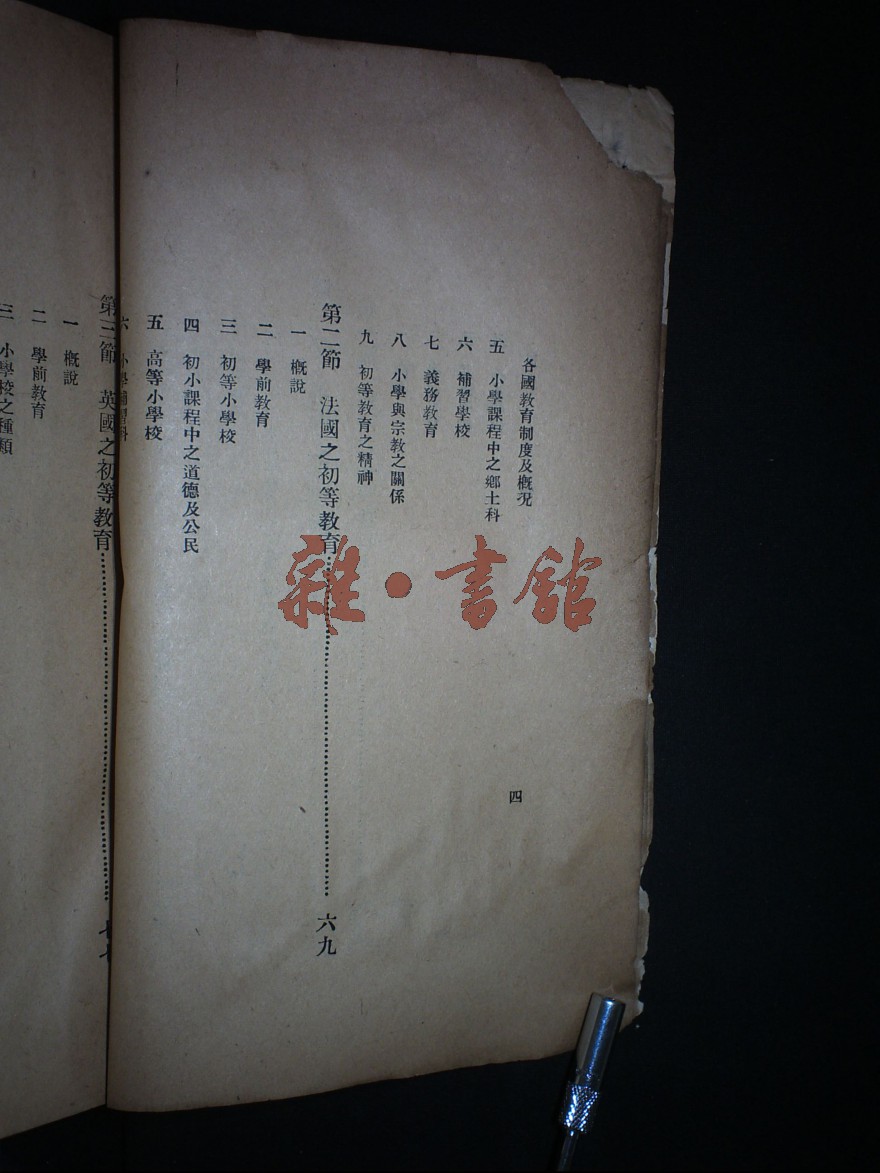 各國教育制度及概況
四
五 小學課程中之鄉土科
六 補習學校
七 義務教育
八 小學與宗教之關係
九 初等教育之精神
第二節 法國之初等教育……………六九
一 概說
二 學前教育
三 初等小學校
四 初小課程中之道德及公民
五 高等小學校
六 小學補習科
第三節 英國之初等教育……………七七
一 概說
二 學前教育
三 小學校之種類
雜·書館